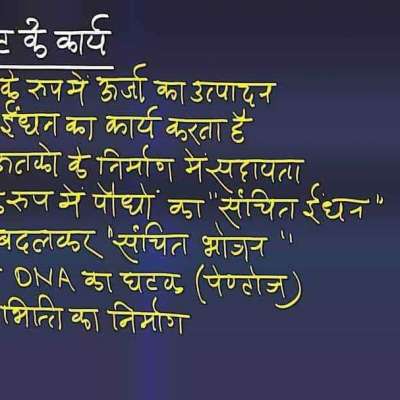 ट के कार्य
के रूप में ऊर्जा का उत्पादन
ईंधन का कार्य करता है
ऊतको के निर्माण में सहायता
रूप में पौधों का "संचित ईंधन"
बदलकर "संचित भोजन"
DNA का घटक (पेण्टोज)
भित्ति का निर्माण